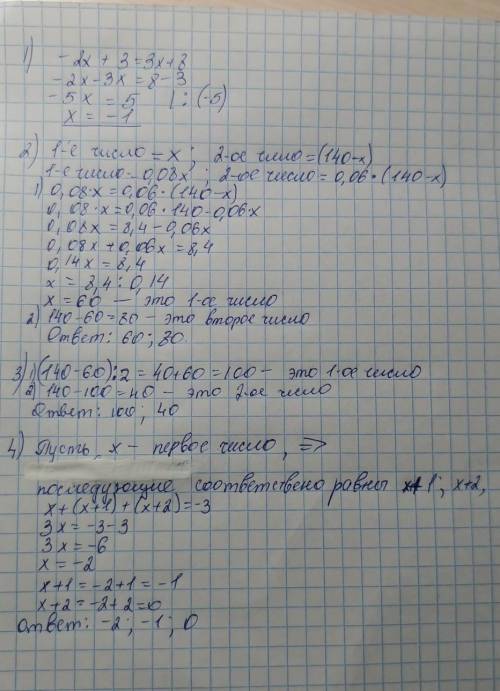 1) -2x + 3 = 3x + 8
-2x - 3x = 8 - 3
-5x = 5 | : (-5)
x = -1
2) 1-е число = x ; 2-ое число = (140-x)
1-е число - 0,08x ; 2-ое число = 0,06 · (140-x)
1) 0,08·x = 0,06 · (140-x)
0,08·x = 0,06·140-0,06x
0,08x = 8,4-0,06x
0,08x + 0,06x = 8,4
0,14x = 8,4
x = 8,4 : 0,14
x = 60 — это 1-ое число
2) 140-60=80 - это второе число
Ответ: 60 ; 80
3) 1) (140-60):2 = 40+60 = 100 - это 1-ое число
2) 140-100=40 - это 2-ое число
Ответ: 100 ; 40
4) Пусть, x - первое число, =>
последующие соответствено равны x+1 ; x+2,
x + (x+1) + (x+2) = -3
3x = -3-3
3x = -6
x = -2
x+1 = -2+1 = -1
x+2 = -2+2 = 0
Ответ: -2 ; -1 ; 0